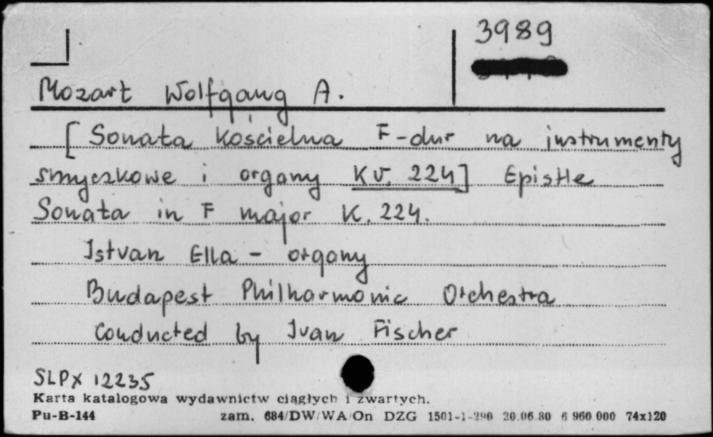 3989
Mozart Wolfgang A.
[Sonata kościelna F-dur na instrumenty
smyczkowe i organy KV. 224] Epistle
Sonata in F major K. 224.
Istvan Ella - organy
Budapest Philharmonic Orchestra
conducted by Ivan Fischer
SLPX 12235
Karta katalogowa wydawnictw ciągłych i zwartych.
Pu-B-144 zam. 684/DW/WA/On DZG 1501-1-z90 20.06.80 6 960 000 74x120